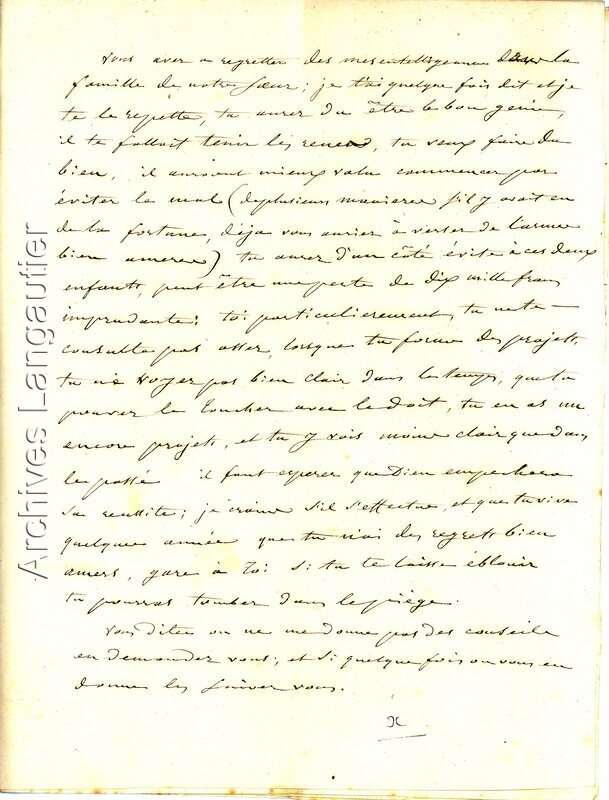 vous avez a regretter des mesentelligeances dans la
famille de notre sœur; je t'ai quelque fois dit et je
te le repette, tu aurez du être le bon genie,
il te falloit tenir les renes, tu veux faire du
bien, il auroient mieux valu commencer par
éviter le mal (de plusieurs manieres s'il y avoit eu
de la fortune, déja vous auriez à verser de l'armes
bien ameres) tu aurez d'un côté évité à ces deux
enfants, peut être une perte de dix mille frans
imprudante; toi particulierement, tu ne te
consulte pas assez, lorsque tu forme des projets,
tu ne voyez pas bien clair dans le temps, que tu
pouvez le toucher avec le doit, tu en as un
encore projets, et tu y vois moins clair que dans
le passé il faut esperer que Dieu empechera
sa reussite; je crains s'il s'effectue, et que tu vive
quelque année que tu n'ai des regrets bien
amers, gare à toi si tu te laisse éblouir
tu pourras tomber dans le piège.
vous dites on ne me donne pas des conseils
en demandez vous; et si quelque fois on vous en
donne les suivez vous.
Archives Langautier